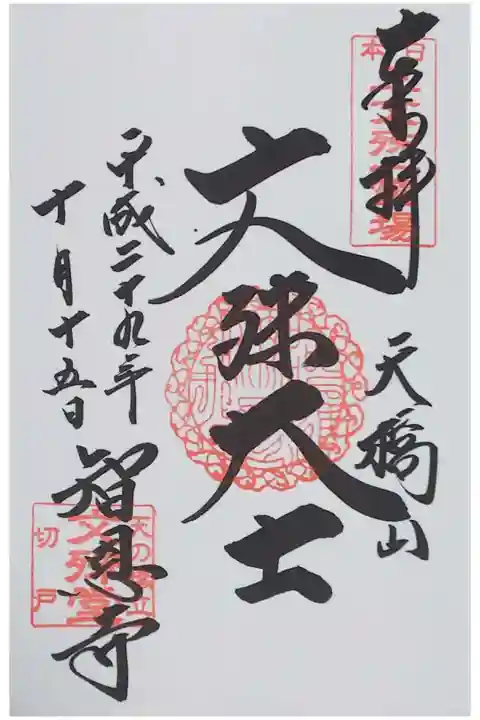 奉拝
日本
三文殊霊場
天橋山
文殊大士
平成二十九年
十月十五日
智恩寺
天の橋立
文殊堂
切戸